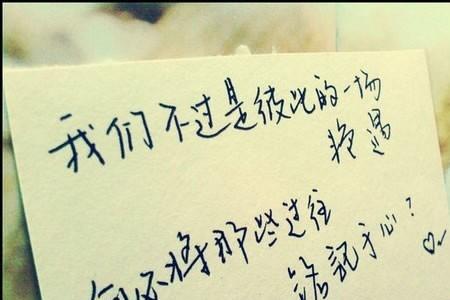 我们不过是彼此的一场
艳遇
何不将那些过往
铭記于心?